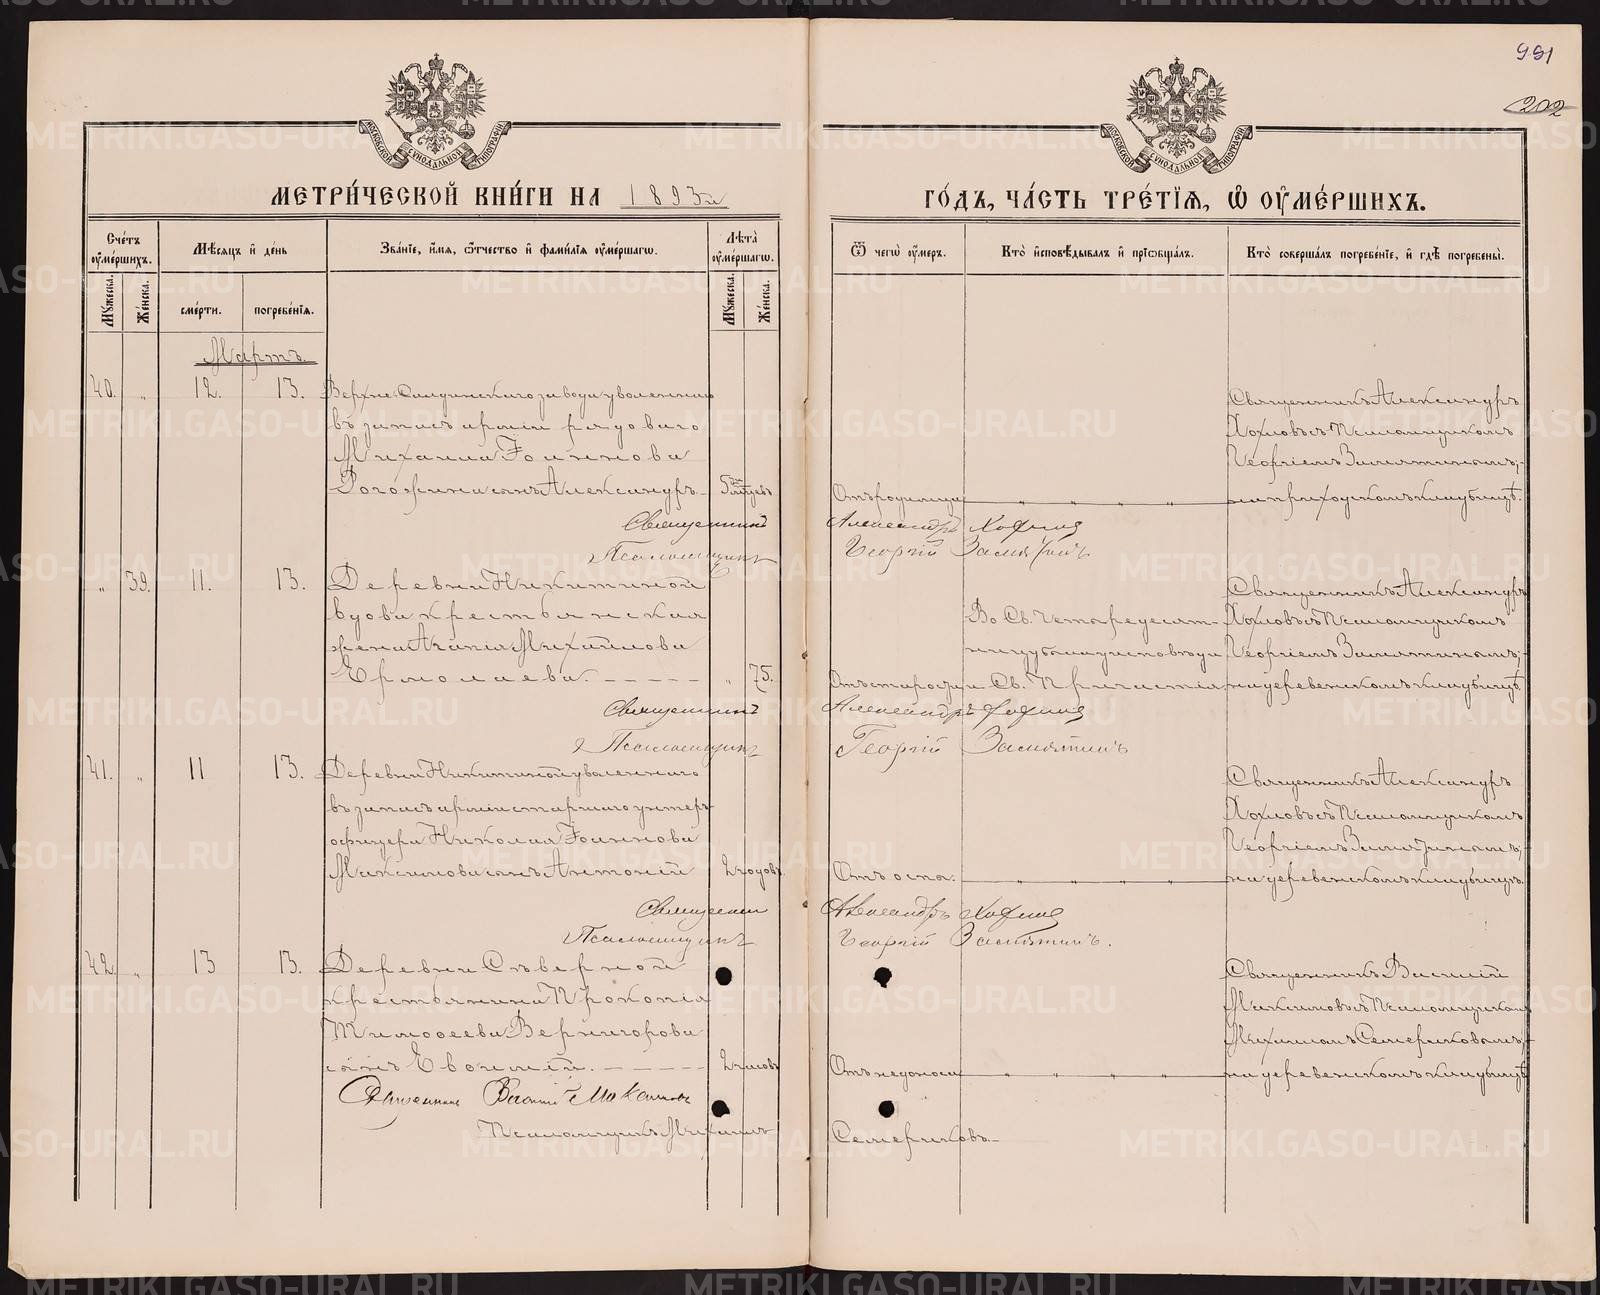 991
202
МОСКОВСКОЙ СѴНОДАЛЬНОЙ ТИПОГРАФІИ
МОСКОВСКОЙ СѴНОДАЛЬНОЙ ТИПОГРАФІИ
МЕТРИ́ЧЕСКОЙ КНИ́ГИ НА 1893й
ГО́ДЪ, ЧА́СТЬ ТРЕ́ТІЯ, Ѿ ОУМЕ́РШИХЪ.
Сче́тъ оуме́ршихъ.
Мѣсяцъ и де́нь
Зва́ніе, и́мя, ѻтчество и фами́лія оуме́ршагѡ.
Лѣта̀ оуме́ршагѡ.
Ѿ чегѡ̀ оу́меръ.
Кто̀ исповѣдывалъ и пріѡбща́лъ.
Кто̀ соверша́лъ погребе́ніе, и гдѣ погребены̀.
Му́жеска.
Же́нска.
сме́рти.
погребе́нія.
Му́жеска.
Же́нска.
Мартъ.
40. „ 12. 13. Верхне Салдинскаго завода уволеннаго
въ запасъ арміи рядоваго
Михаила Іоаннова
Рогожина сынъ Александръ. 5 мѣсяцевъ
Отъ родимца
Священникъ Александръ
Хохловъ съ Псаломщикомъ
Георгіемъ Замятинымъ;
на приходскомъ кладбищѣ.
Священникъ Александръ Хохловъ
Псаломщикъ Георгій Замятинъ
„ 39. 11. 13. Деревни Никитиной
вдова крестьянская
жена Агапія Михайлова
Ермолаева. „ 75.
Отъ старости
Во Св. Четыредесят-
ницу была у исповѣди
и Св. Причастія
Священникъ Александръ
Хохловъ съ Псаломщикомъ
Георгіемъ Замятинымъ;
на деревенскомъ кладбищѣ.
Священникъ Александръ Хохловъ
Псаломщикъ Георгій Замятинъ
41. „ 11 13. Деревни Никитиной уволеннаго
въ запасъ арміи старшаго унтеръ
офицера Николая Іоаннова
Максимова сынъ Антоній 2 годовъ
Отъ оспы.
Священникъ Александръ
Хохловъ съ Псаломщикомъ
Георгіемъ Замятинымъ;
на деревенскомъ кладбищѣ.
Священникъ Александръ Хохловъ
Псаломщикъ Георгій Замятинъ.
42. „ 13 13. Деревни Сѣверной
крестьянина Прокопія
Тимоѳеева Вернигорова
сынъ Евѳимій. 2 часовъ
Отъ недоноса
Священникъ Василій
Максимовъ съ Псаломщикомъ
Михаиломъ Семериковымъ;
на деревенскомъ кладбищѣ
Священникъ Василій Максимовъ
Псаломщикъ Михаилъ Семериковъ.
METRIKI.GASO-URAL.RU